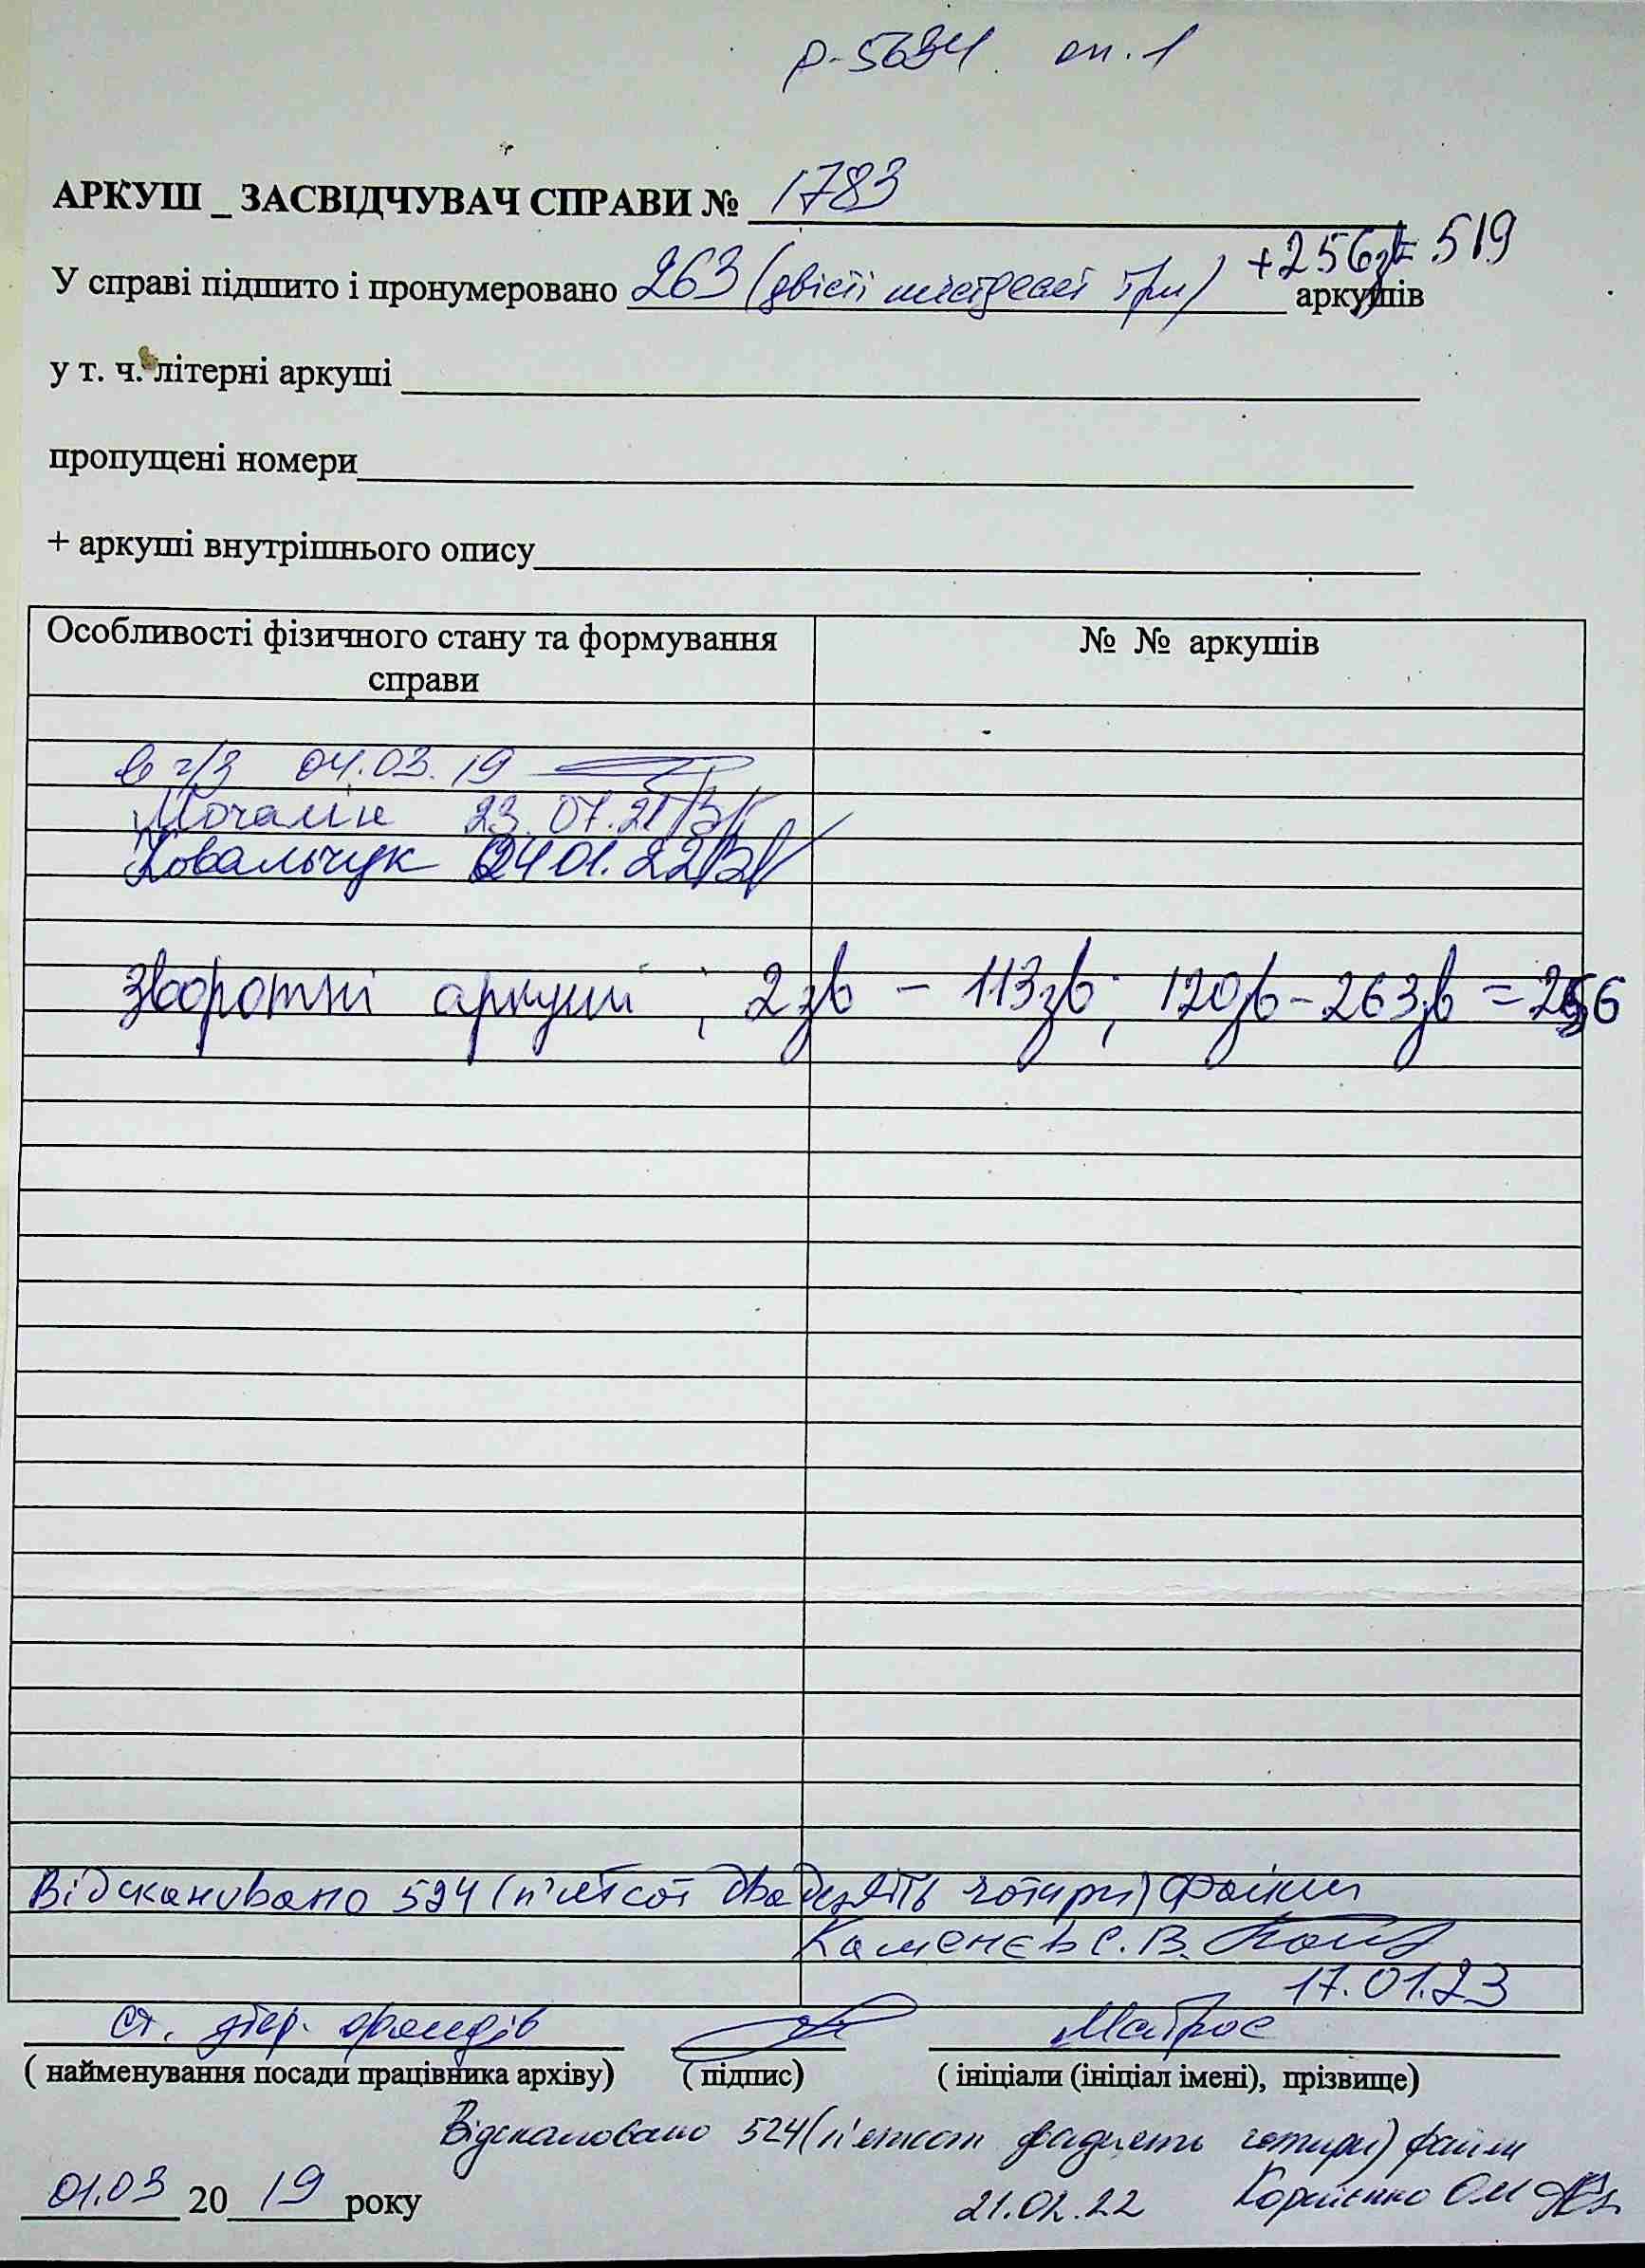 р-5634. оп. 1
АРКУШ _ ЗАСВІДЧУВАЧ СПРАВИ № 1783
+256зв= 519
У справі підшито і пронумеровано 263 (двісті шістдесят три) аркушів
у т. ч. літерні аркуші
пропущені номери
+ аркуші внутрішнього опису
Особливості фізичного стану та формування справи
№ № аркушів
04.03.19
Мочалін 23.07.21
Ковальчук 24.01.22
зворотні аркуші ; 2зв – 113зв; 120зв – 263зв = 256
Відскановано 524 (п'ятсот двадцять чотири) файли
Каменєв С. В.
17.01.23
ст. фондів Матрос
( найменування посади працівника архіву) ( підпис) ( ініціали (ініціал імені), прізвище)
Відскановано 524 (п'ятсот двадцять чотири) файли
01.03 20 19 року
21.02.22 ОМ